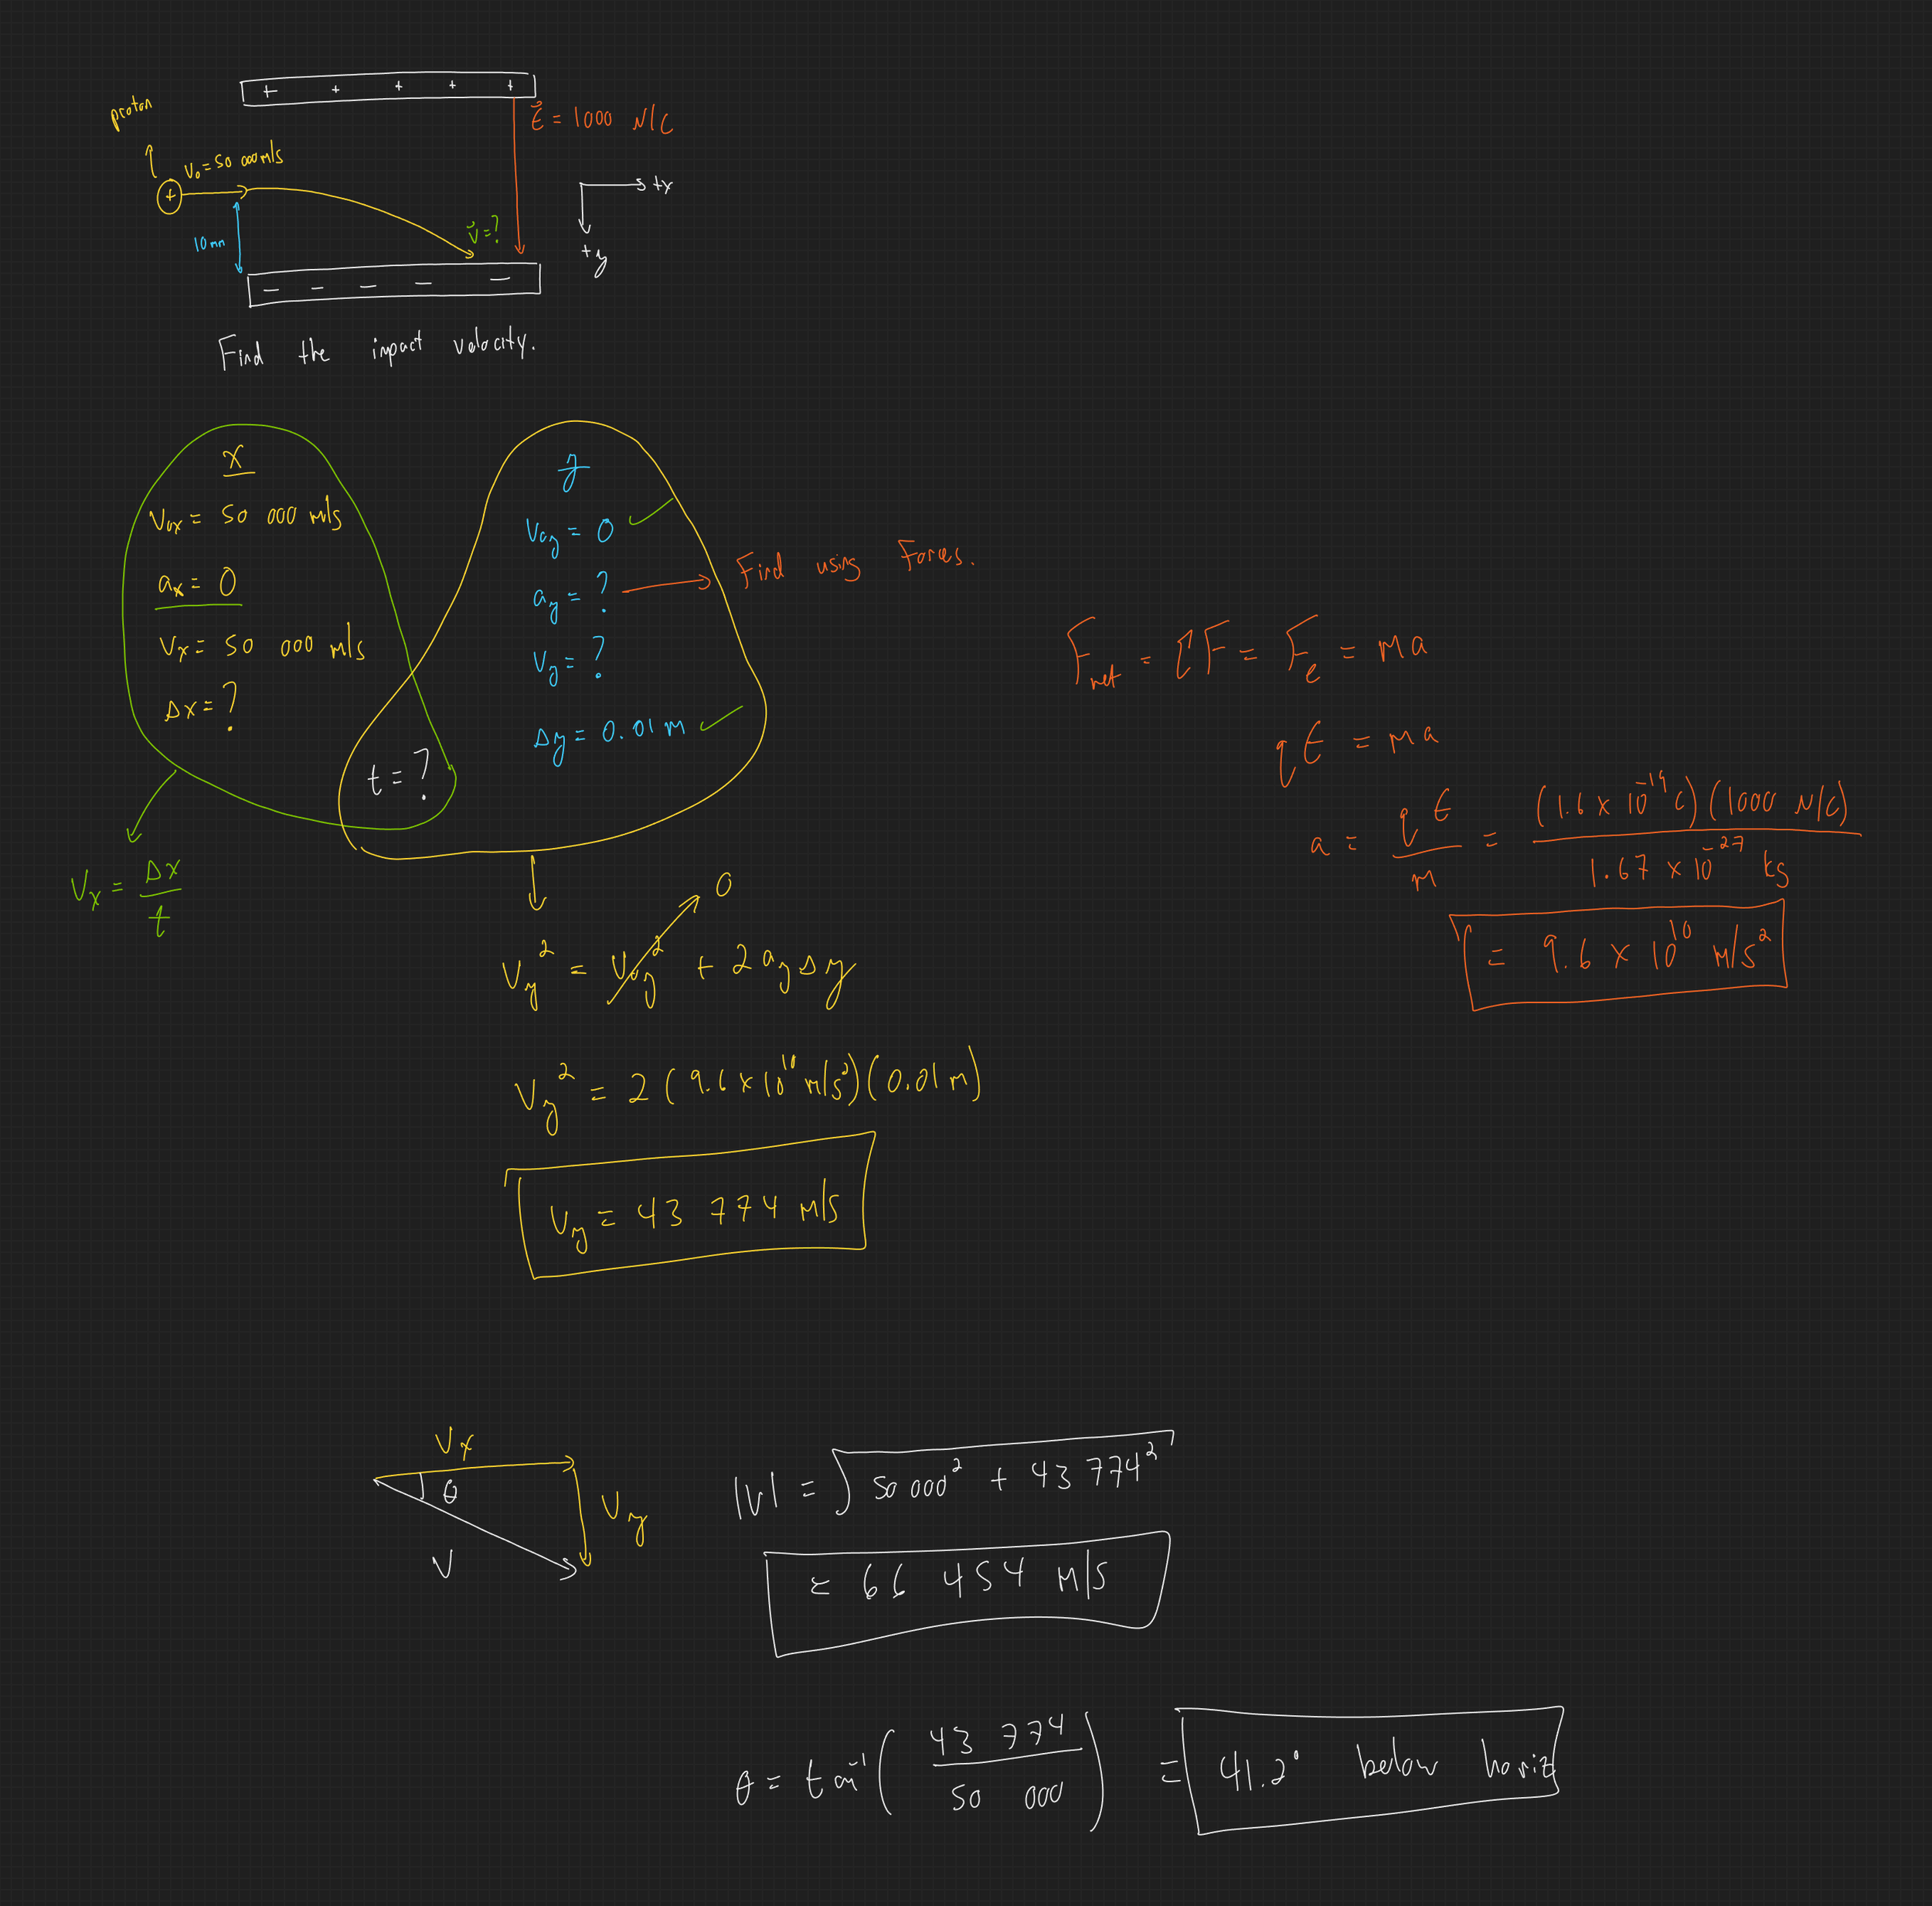 + + + + +
proton
E⃗ = 1000 N/C
V₀ = 50 000 m/s
+
+x
10mm
v⃗ = ?
+y
− − − − −
Find the impact velocity.
x
V₀ₓ = 50 000 m/s
aₓ = 0
Vₓ = 50 000 m/s
Δx = ?
t = ?
y
V₀y = 0 ✓
ay = ? → Find using Forces.
Vy = ?
Δy = 0.01 m ✓
Fnet = ΣF = Fe = ma
qE = ma
a = qE/m = (1.6 x 10⁻¹⁹ C)(1000 N/C) / 1.67 x 10⁻²⁷ kg
= 9.6 x 10¹⁰ m/s²
Vₓ = Δx/t
0
Vy² = V₀y² + 2 ay Δy
Vy² = 2 (9.6 x 10¹⁰ m/s²)(0.01 m)
Vy = 43 774 m/s
Vₓ
θ
Vy
V
|V| = √(50 000² + 43 774²)
= 66 454 m/s
θ = tan⁻¹ (43 774 / 50 000) = 41.2° below horiz